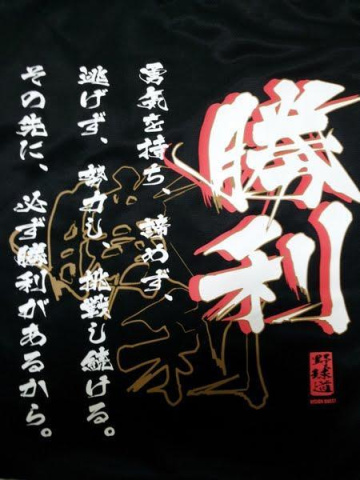 勝利
勇気を持ち、諦めず、
逃げず、努力し、挑戦し続ける。
その先に、必ず勝利があるから。
野球道